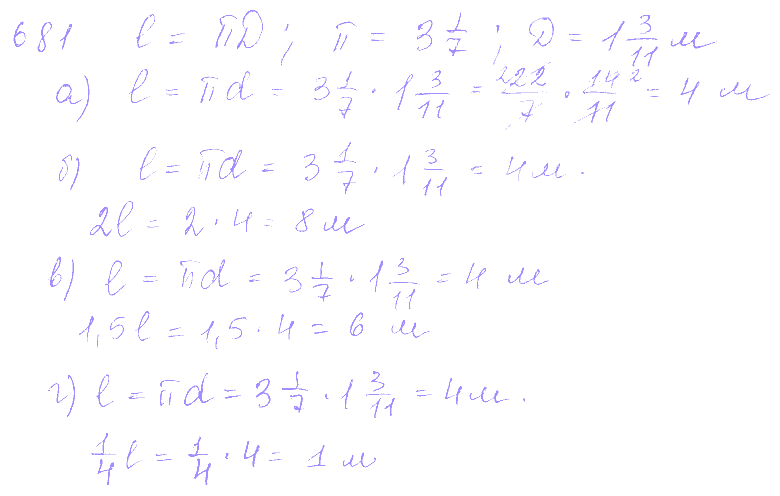 681 l = πD; π = 3 1/7; D = 1 3/11 м
а) l = πd = 3 1/7 · 1 3/11 = 22/7 · 14/11 = 4 м
б) l = πd = 3 1/7 · 1 3/11 = 4 м.
2l = 2 · 4 = 8 м
в) l = πd = 3 1/7 · 1 3/11 = 4 м
1,5l = 1,5 · 4 = 6 м
г) l = πd = 3 1/7 · 1 3/11 = 4 м.
1/4 l = 1/4 · 4 = 1 м